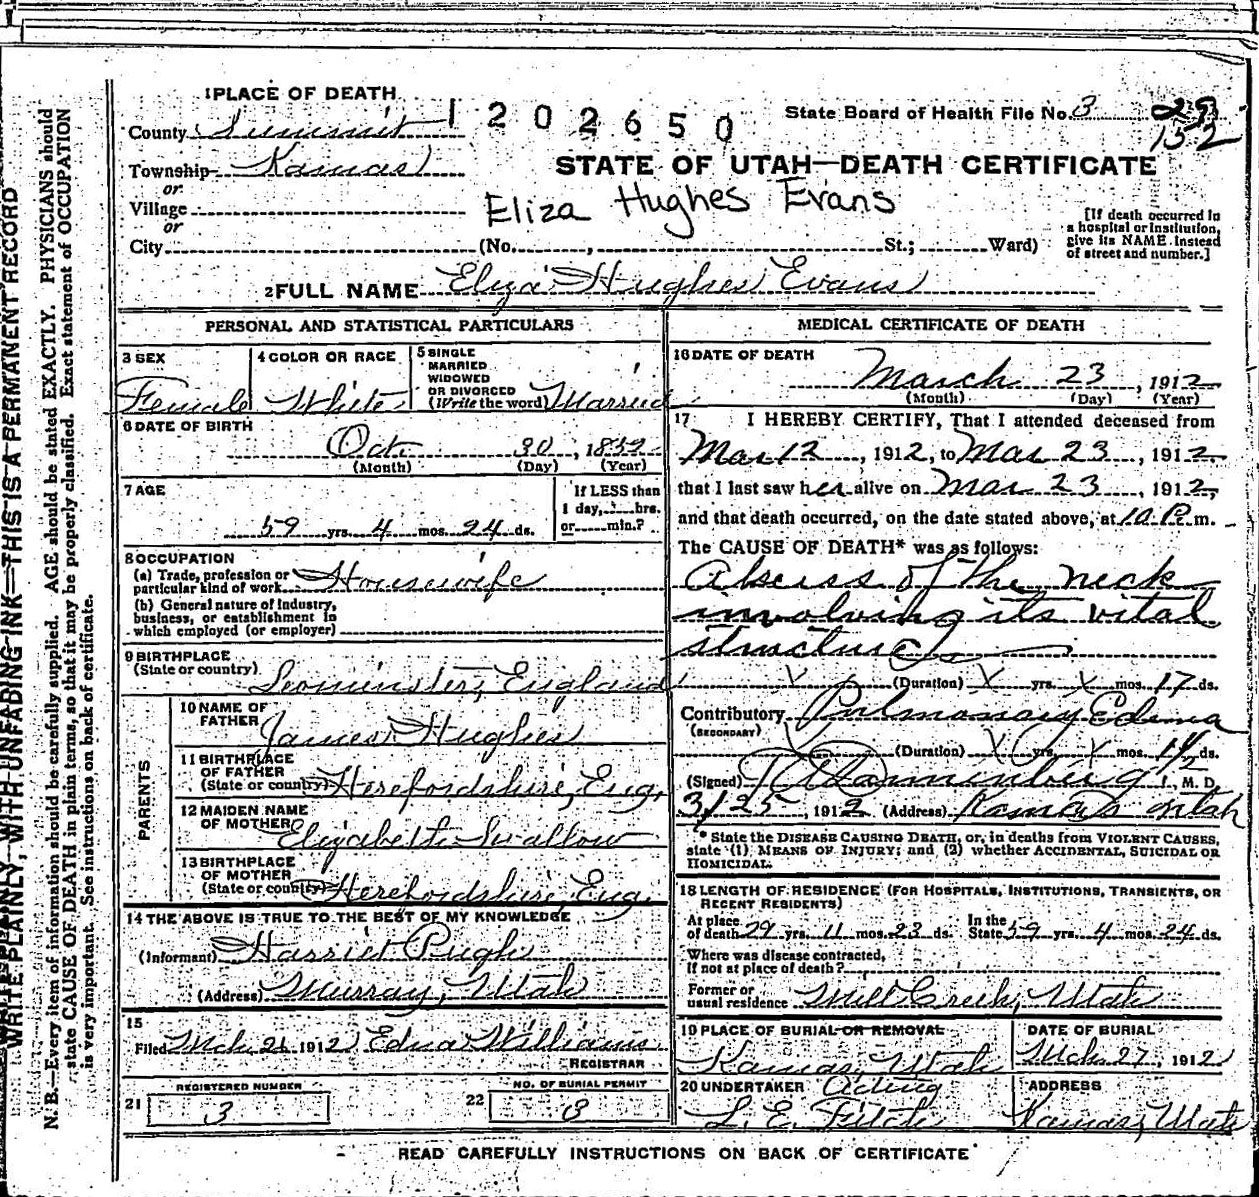 1 PLACE OF DEATH
County Summit
1202650
State Board of Health File No. 3
29
152
Township Kamas
or
Village
or
City (No. , St.; Ward)
STATE OF UTAH—DEATH CERTIFICATE
Eliza Hughes Evans
[If death occurred in a hospital or institution, give its NAME instead of street and number.]
2 FULL NAME Eliza Hughes Evans
PERSONAL AND STATISTICAL PARTICULARS
3 SEX
Female
4 COLOR OR RACE
White
5 SINGLE
MARRIED
WIDOWED
OR DIVORCED
(Write the word) Married
6 DATE OF BIRTH
Oct. 30, 1852
(Month) (Day) (Year)
7 AGE
59 yrs. 4 mos. 24 ds.
If LESS than
1 day, hrs.
or min.?
8 OCCUPATION
(a) Trade, profession or
particular kind of work Housewife
(b) General nature of industry,
business, or establishment in
which employed (or employer)
9 BIRTHPLACE
(State or country)
Leominster, England
PARENTS
10 NAME OF
FATHER
James Hughes
11 BIRTHPLACE
OF FATHER
(State or country) Herefordshire, Eng.
12 MAIDEN NAME
OF MOTHER
Elizabeth Swallow
13 BIRTHPLACE
OF MOTHER
(State or country) Herefordshire, Eng.
14 THE ABOVE IS TRUE TO THE BEST OF MY KNOWLEDGE
(Informant) Harriet Pugh
(Address) Murray, Utah
15
Filed Mch. 26 1912 Edna Williams
REGISTRAR
REGISTERED NUMBER
21 3
NO. OF BURIAL PERMIT
22 3
MEDICAL CERTIFICATE OF DEATH
16 DATE OF DEATH
March 23, 1912
(Month) (Day) (Year)
17 I HEREBY CERTIFY, That I attended deceased from
Mar 12, 1912, to Mar 23, 1912,
that I last saw her alive on Mar 23, 1912,
and that death occurred, on the date stated above, at 10 P. m.
The CAUSE OF DEATH* was as follows:
Abscess of the neck
involving its vital
structures
(Duration) yrs. mos. 17 ds.
Contributory Pulmonary Edema
(SECONDARY)
(Duration) yrs. mos. ds.
(Signed) M. D.
3/25, 1912 (Address) Kamas Utah
* State the DISEASE CAUSING DEATH, or, in deaths from VIOLENT CAUSES,
state (1) MEANS OF INJURY; and (2) whether ACCIDENTAL, SUICIDAL OR
HOMICIDAL.
18 LENGTH OF RESIDENCE (FOR HOSPITALS, INSTITUTIONS, TRANSIENTS, OR
RECENT RESIDENTS)
At place
of death 29 yrs. 11 mos. 23 ds.
In the
State 59 yrs. 4 mos. 24 ds.
Where was disease contracted,
if not at place of death?
Former or
usual residence Mill Creek, Utah
19 PLACE OF BURIAL OR REMOVAL
Kamas, Utah
DATE OF BURIAL
Mch 27, 1912
20 UNDERTAKER Acting
L. E. Fitch
ADDRESS
Kamas, Utah
READ CAREFULLY INSTRUCTIONS ON BACK OF CERTIFICATE
WRITE PLAINLY, WITH UNFADING INK—THIS IS A PERMANENT RECORD
N. B.—Every item of information should be carefully supplied. AGE should be stated EXACTLY. PHYSICIANS should
state CAUSE OF DEATH in plain terms, so that it may be properly classified. Exact statement of OCCUPATION
is very important. See instructions on back of certificate.